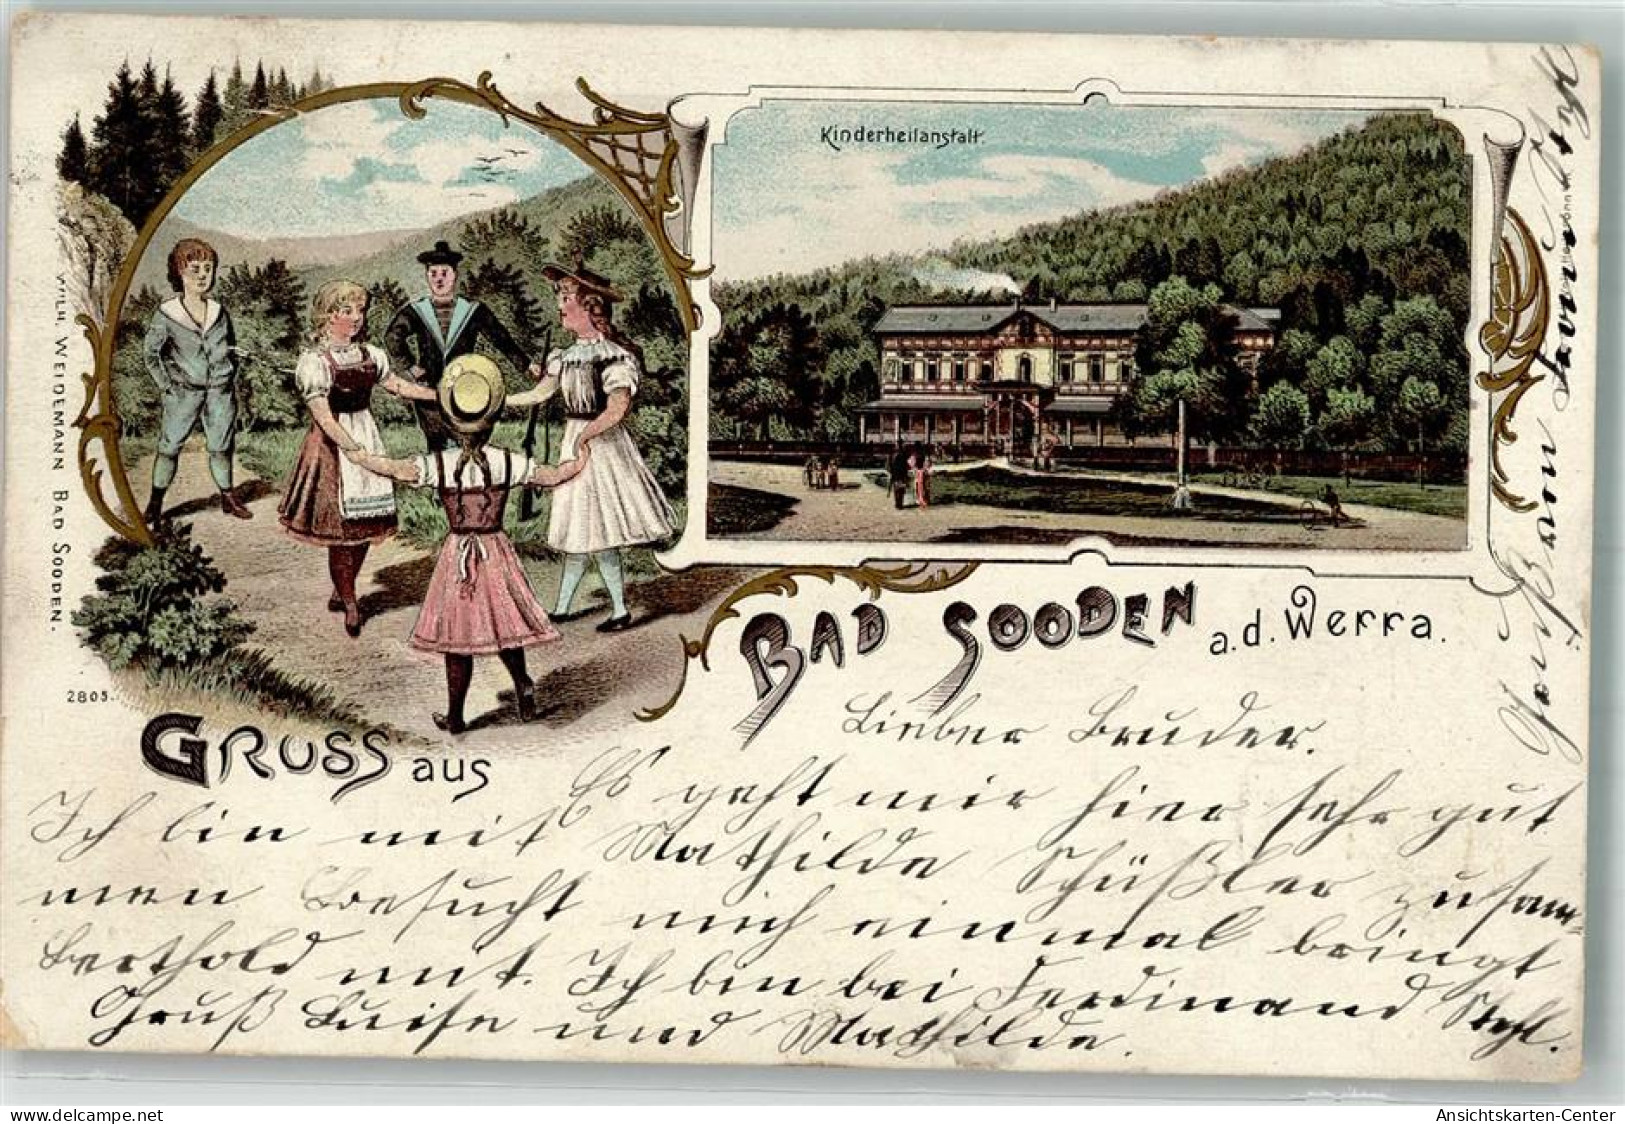 Kinderheilanstalt.
WILH. WEIDEMANN BAD SOODEN.
2805.
GRUSS aus
BAD SOODEN a.d. Werra.
Lieber Bruder.
Es geht mir hier sehr gut
Ich bin mit Mathilde Schüßler zusam-
men Besucht mich einmal bringt
Berthold mit. Ich bin bei Ferdinand Stehl.
Gruß Luise und Mathilde.
Gruß von Frau
Ansichtskarten-Center